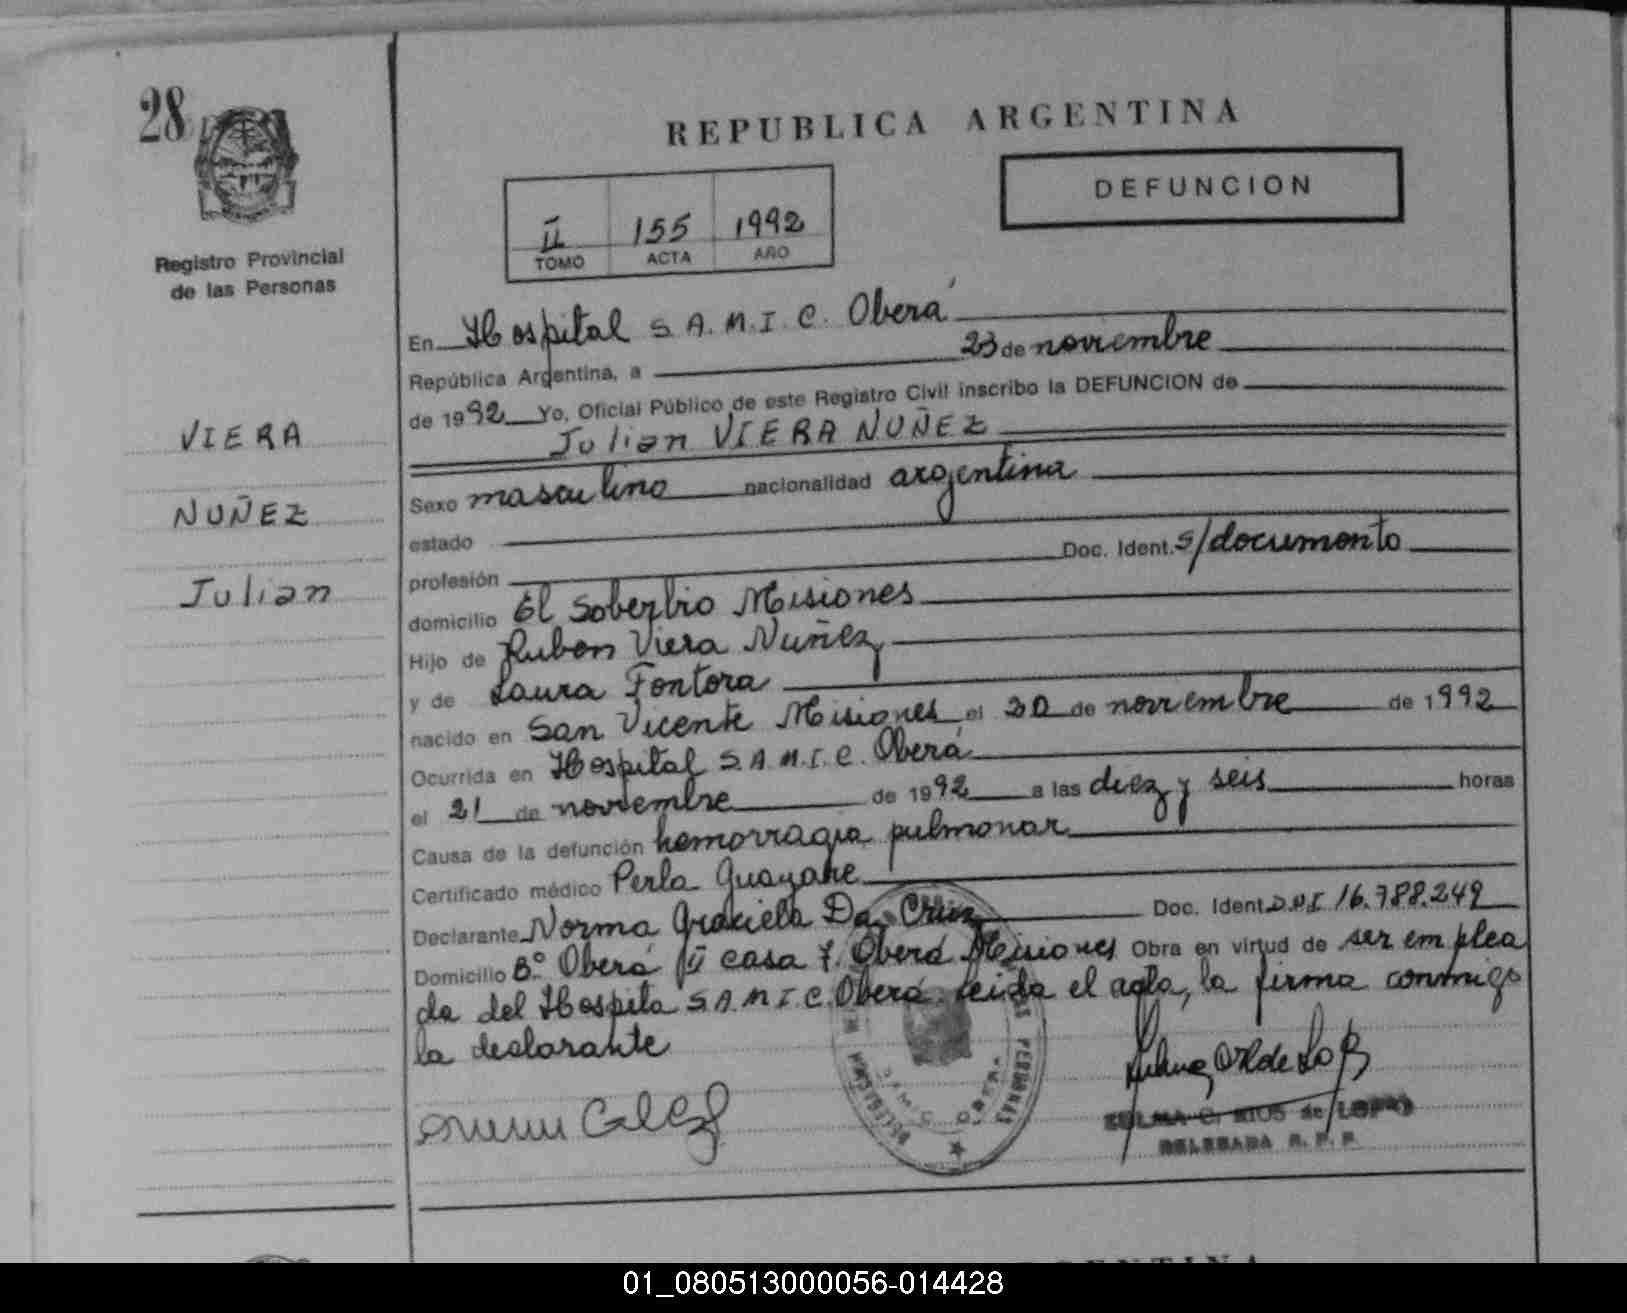 28
Registro Provincial
de las Personas
VIERA
NUÑEZ
Julian
REPUBLICA ARGENTINA
DEFUNCION
II 155 1992
TOMO ACTA AÑO
En Hospital S.A.M.I.C. Oberá
República Argentina, a 23 de noviembre
de 1992 Yo, Oficial Público de este Registro Civil inscribo la DEFUNCION de
Julian VIERA NUÑEZ
Sexo masculino nacionalidad argentina
estado
profesión Doc. Ident. s/documento
domicilio El Soberbio Misiones
Hijo de Ruben Viera Nuñez
y de Laura Fontora
nacido en San Vicente Misiones el 20 de noviembre de 1992
Ocurrida en Hospital S.A.M.I.C. Oberá
el 21 de noviembre de 1992 a las diez y seis horas
Causa de la defunción hemorragia pulmonar
Certificado médico Perla
Declarante Norma Graciela Da Cruz Doc. Ident. D.N.I 16.788.249
Domicilio B° Oberá II casa 7. Oberá Misiones Obra en virtud de ser emplea
da del Hospita S.A.M.I.C. Oberá. leida el acta, la firma conmigo
la declarante
ZULMA C. RIOS de LOPEZ
DELEGADA R. P. P.
ARGENTINA
01_080513000056-014428